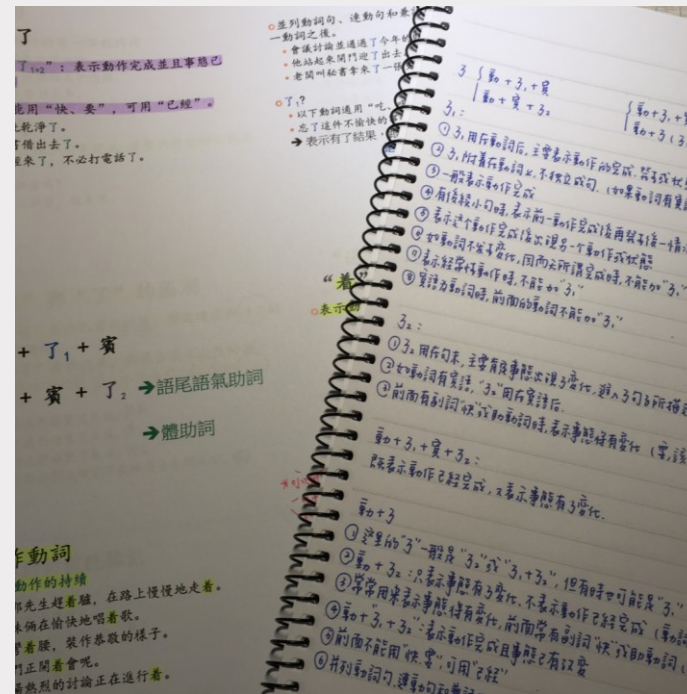 了
了₁₊₂”：表示動作完成並且事態已
能用“快、要”，可用“已經”。
乾淨了。
借出去了。
來了，不必打電話了。
+ 了₁ + 賓
+ 賓 + 了₂ →語尾語氣助詞
→體助詞
作動詞
動作的持續
先生趕着驢，在路上慢慢地走着。
妹倆在愉快地唱着歌。
着腰，裝作恭敬的樣子。
們正開着會呢。
熱烈的討論正在進行着。
並列動詞句、連動句和兼
一動詞之後。
會議討論並通過了今年的
他站起來開門迎了出去
老闆叫秘書拿來了一張
了₁?
以下動詞通用“吃、
忘了這件不愉快的
→表示有了結果，
“着
表示動
了 動+了₁+賓
動+賓+了₂
動+了₁+
了₁：
①了₁用在動詞后，主要表示動作的完成
②了₁附着在動詞上，不獨立成句。（如果動詞有賓語
③一般表示動作完成
④有後續小句時，表示前一動作完成後再發生後一情
⑤表示这个動作完成後出現另一个動作或狀態
⑥如動詞不發生變化，因而无所謂完成時，不能加“了₁”
⑦表示經常性動作時，不能加“了₁”
⑧賓語为動詞時，前面的動詞不能加“了₁”
了₂：
①了₂用在句末，主要肯定事態出現了变化
②如動詞有賓語，“了₂”用在賓語后.
③前面有副詞“快”或助動詞時，表示事態将有变化（要，該
動+了₁+賓+了₂：
既表示動作已經完成，又表示事態有了变化.
動+了
①这里的“了”一般是“了₂”或“了₁+了₂”，但有時也可能是“了₁”
②動+了₂：只表示事態有了变化，不表示動作已經完成（動
③常常用來表示事態将有变化，前面常有副詞“快”或助動詞（
④動+“了₁+了₂”：表示動作完成且事態已有改变
⑤前面不能用“快、要”，可用“已經”
⑥并列動詞句，連動句和兼